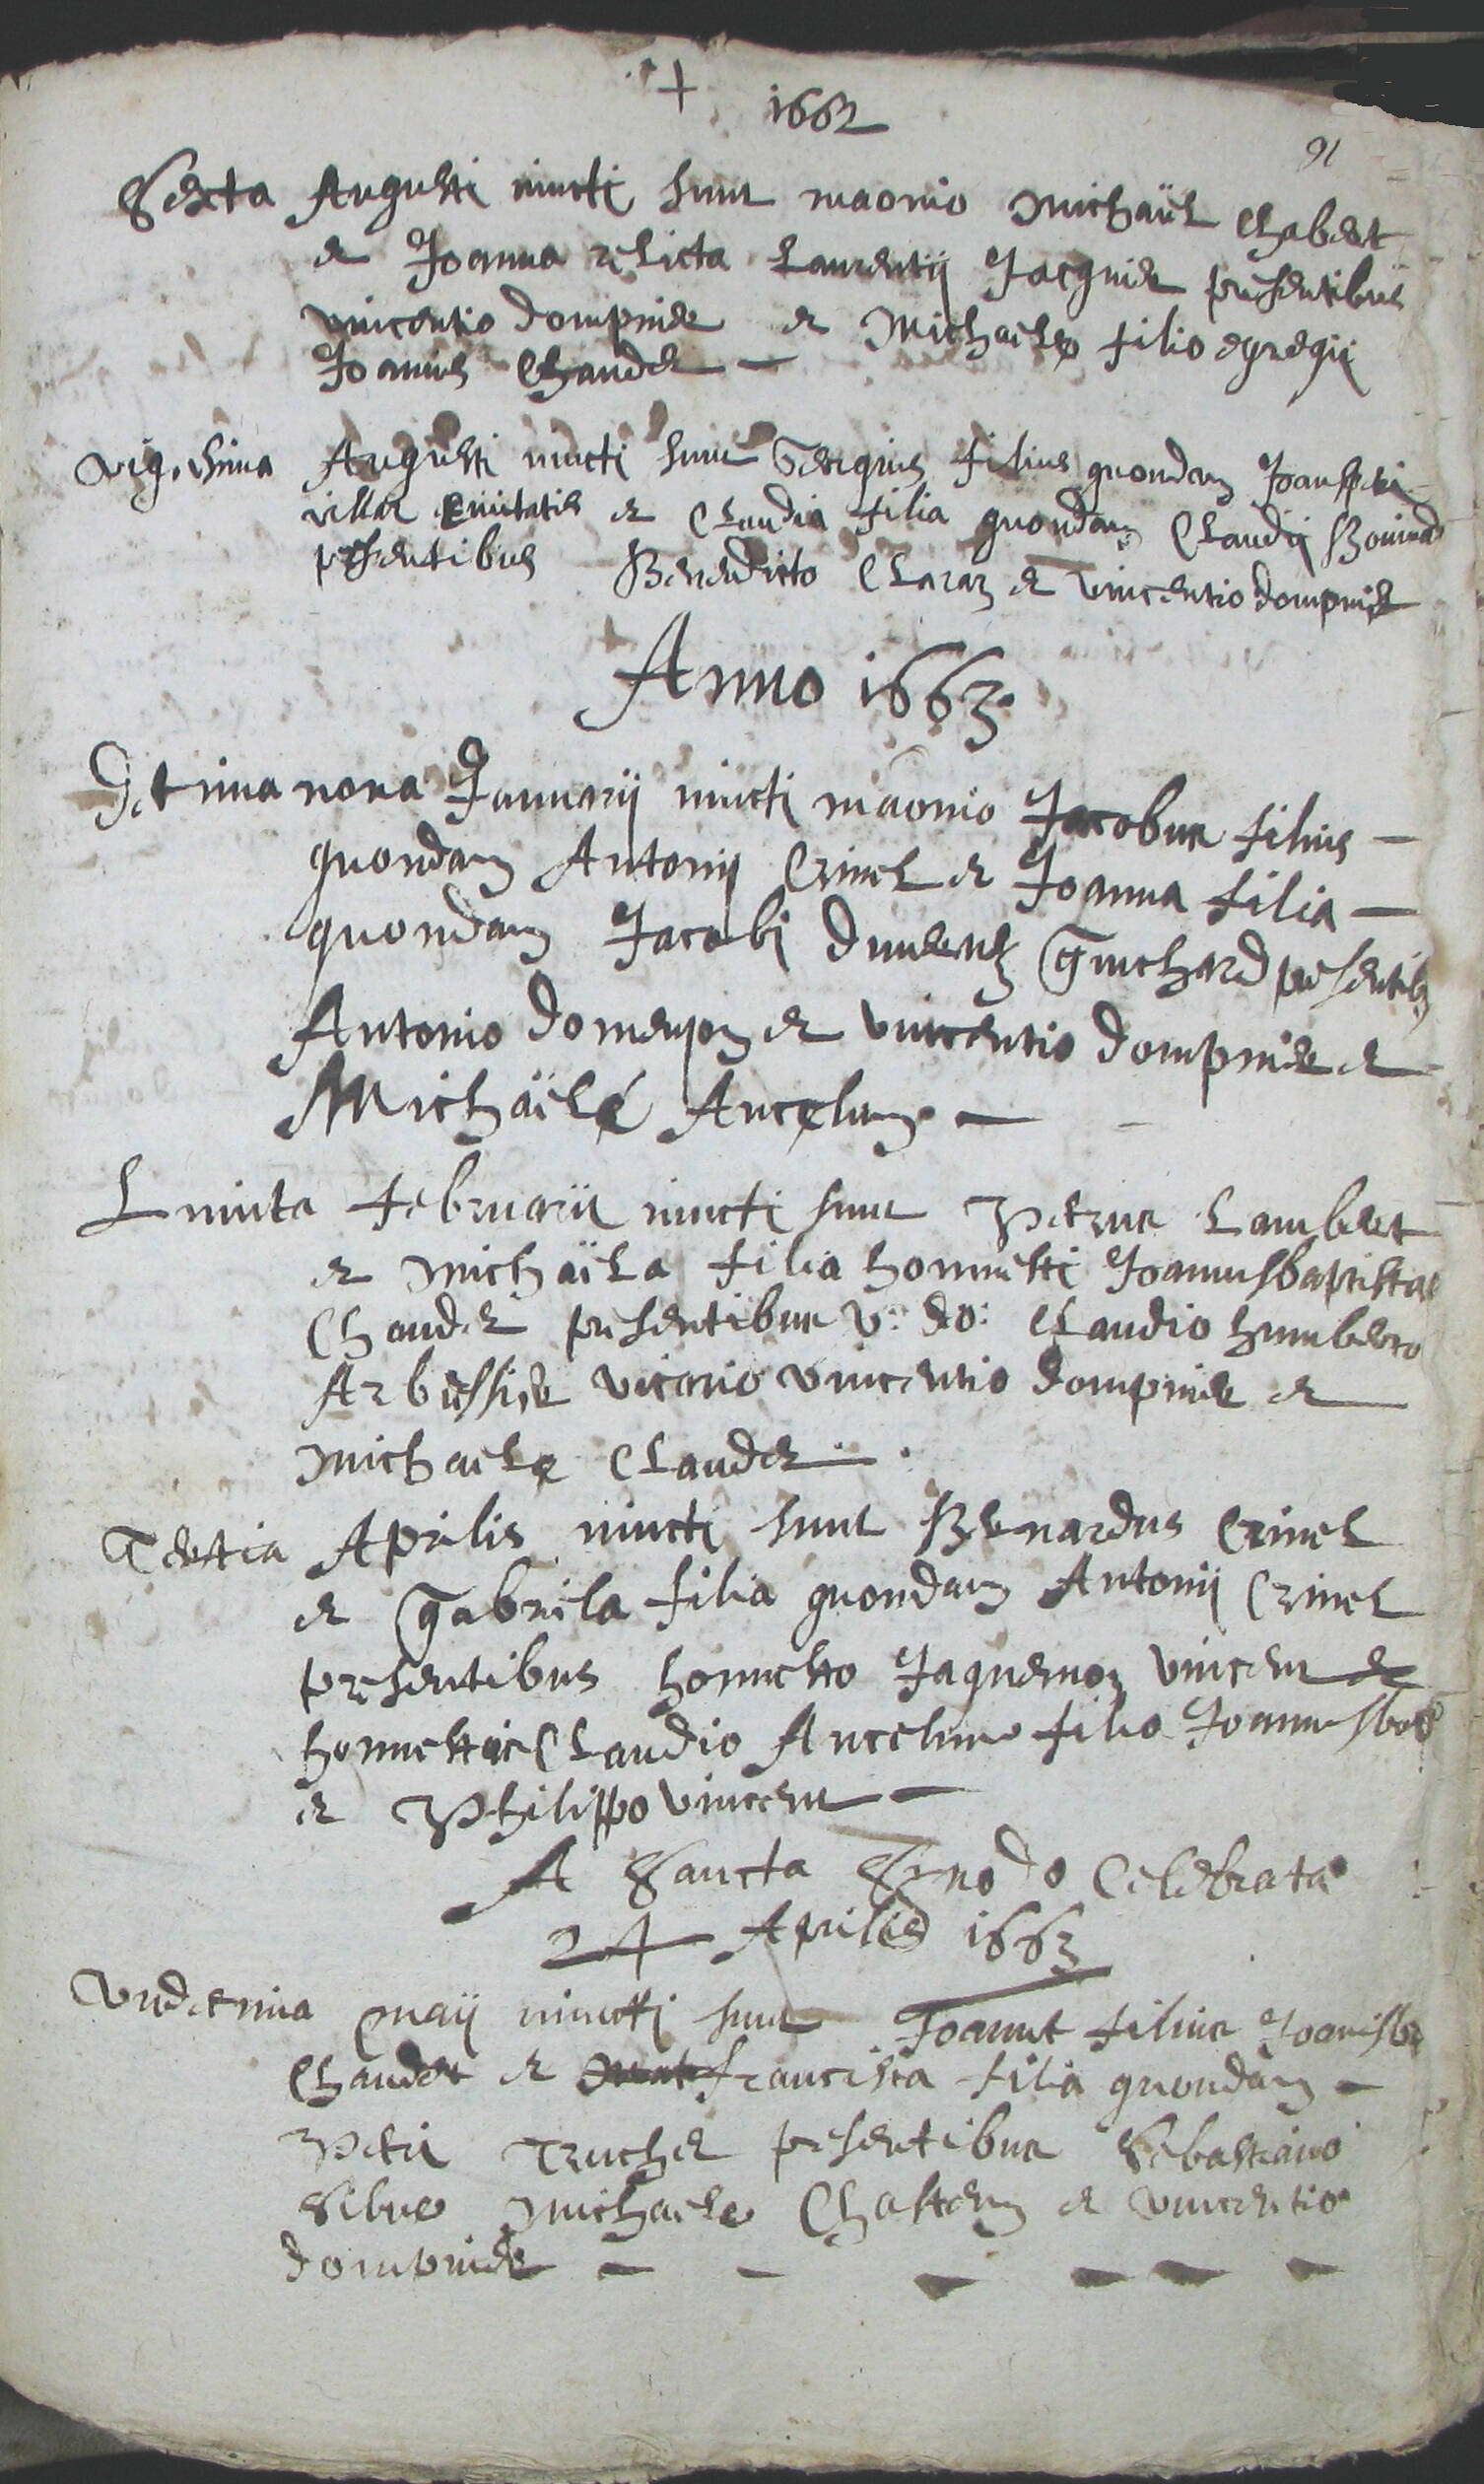 + 1662
91
Sexta Augusti iuncti sunt maonio Michaël Chabert
et Joanna relicta Laurentij Jacquier presentibus
vincentio dompnier et Michaele filio egregij
Joannis Chauder
vigesima Augusti iuncti sunt Georgius filius quondam
villar Civitatis et Claudia filia quondam Claudij
presentibus Benedicto Claraz et vincentio dompnier
Anno 1663.
Decima nona Januarij iuncti maonio Jacobus filius
quondam Antonij Crinel et Joanna filia
quondam Jacobi Guichard presentibus
Antonio et vincentio dompnier et
Michäele Ancelin
Quinta februarii iuncti sunt Petrus Lambert
et Michäela filia honnesti Joannisbaptistae
Chauder presentibus v: do: Claudio humberto
vicario vincentio dompnier et
michaele Clauder
Tertia Aprilis iuncti sunt Bernardus Crinel
et Gabriela filia quondam Antonij Crinel
presentibus honnesto Jaquemoz vincent et
honnestis Claudio Ancelino filio
et Philippo vincent
A Sancta Synodo Celebrata
24 Aprilis 1663
Undecima maij iuncti sunt Joannes filius
Chauder et francisca filia quondam
Petri Trucher presentibus Sebastiano
Sibue michaele et vincentio
dompnier